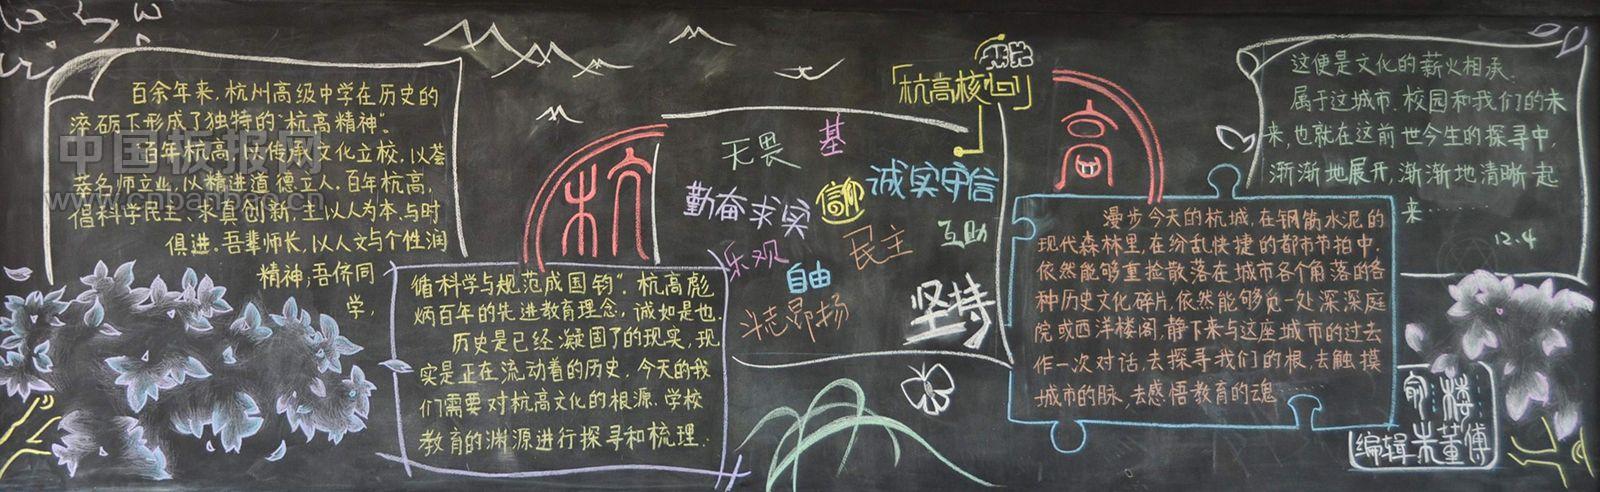 百余年来,杭州高级中学在历史的
淬砺下形成了独特的“杭高精神”。
百年杭高,以传承文化立校,以荟
萃名师立业,以精进道德立人.百年杭高,
倡科学民主、求真创新,主以人为本、与时
俱进.吾辈师长,以人文与个性润
精神;吾侪同
学,
循科学与规范成国钧”.杭高彪
炳百年的先进教育理念,诚如是也.
历史是已经凝固了的现实,现
实是正在流动着的历史.今天的我
们需要对杭高文化的根源.学校
教育的渊源进行探寻和梳理.
杭
「杭高核心」
无畏
基
诚实守信
勤奋求实
信仰
互助
乐观
民主
自由
斗志昂扬
坚持
高
漫步今天的杭城,在钢筋水泥的
现代森林里,在纷乱快捷的都市节拍中,
依然能够重捡散落在城市各个角落的各
种历史文化碎片,依然能够觅一处深深庭
院或西洋楼阁,静下来与这座城市的过去
作一次对话,去探寻我们的根,去触摸
城市的脉,去感悟教育的魂……
这便是文化的薪火相承.
属于这城市.校园和我们的未
来,也就在这前世今生的探寻中,
渐渐地展开,渐渐地清晰起
来………
12.4
俞楼
编辑朱董傅
中国板报网
www.cnbanbao.cn